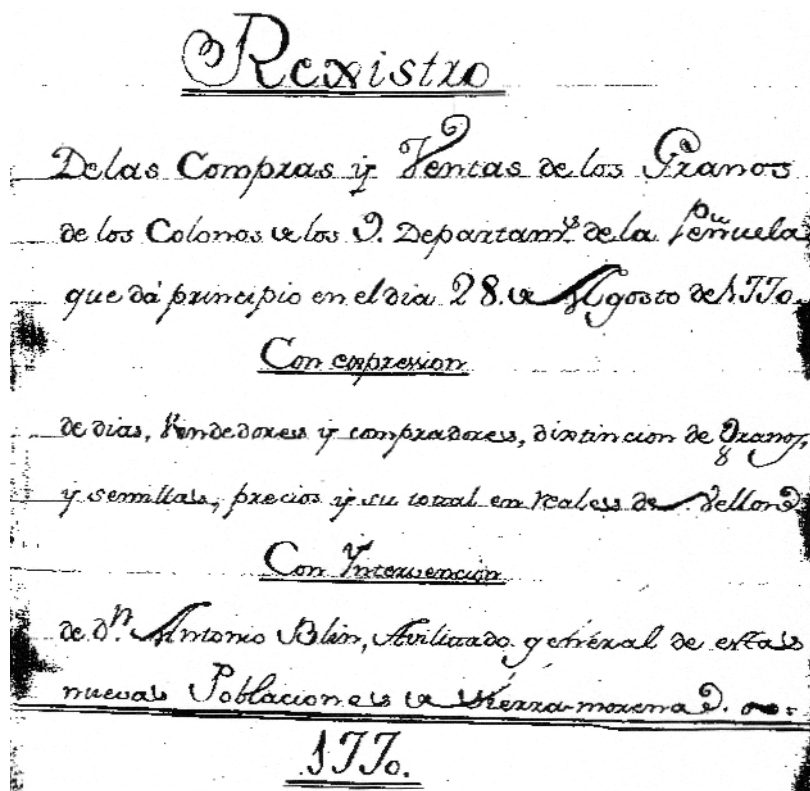 Rexistro
De las Compras y Ventas de los Granos
de los Colonos de los 9. Departam.s de la Peñuela,
que dá principio en el dia 28. de Agosto de 1770.
Con expression
de dias, Vendedores y compradores, distincion de Granos,
y semillas, precios y su total en reales de Vellon
Con Yntervencion
de d.n Antonio Blin, Avilitado general de estas
nuevas Poblaciones de Sierra-morena
1770.